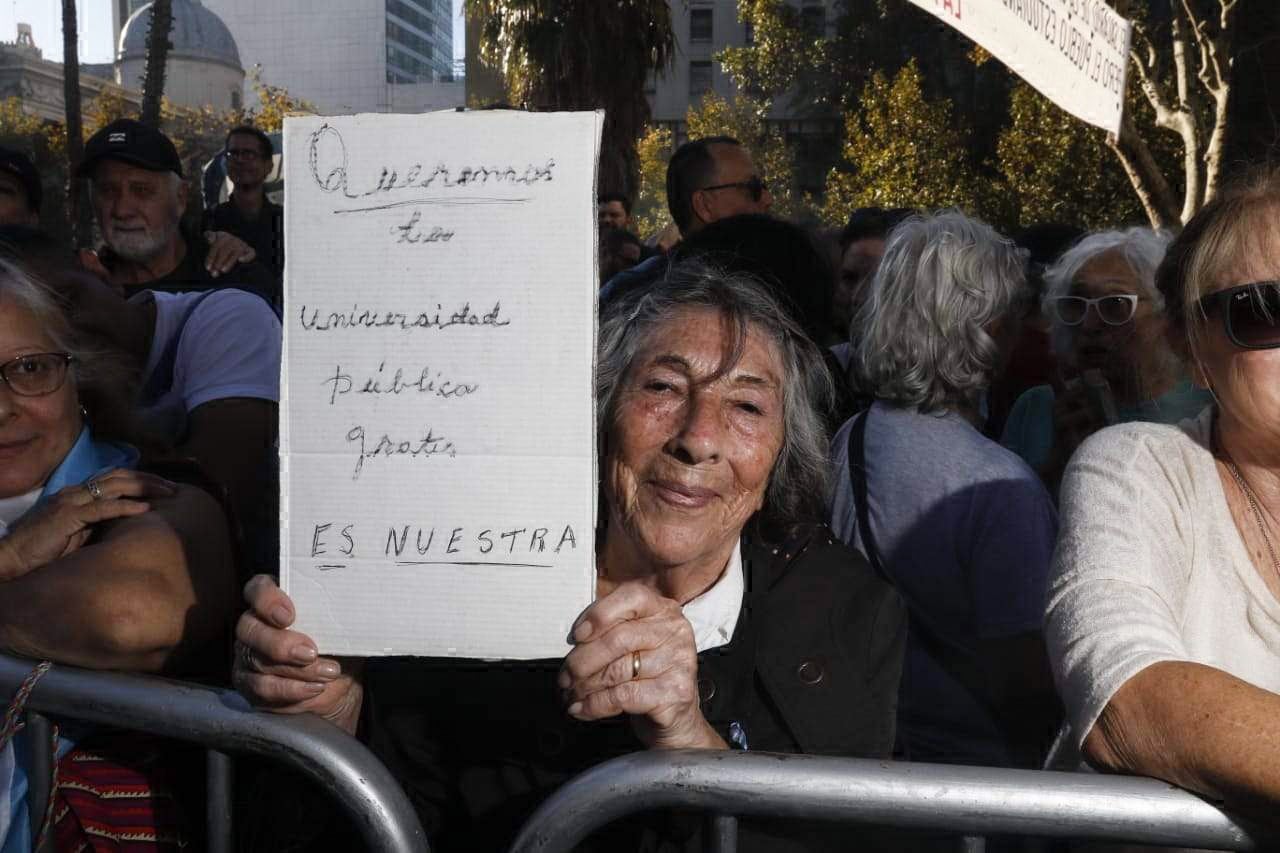 Queremos
la
universidad
pública
gratis
ES NUESTRA
PERO EL PUEBLO
Ray-Ban